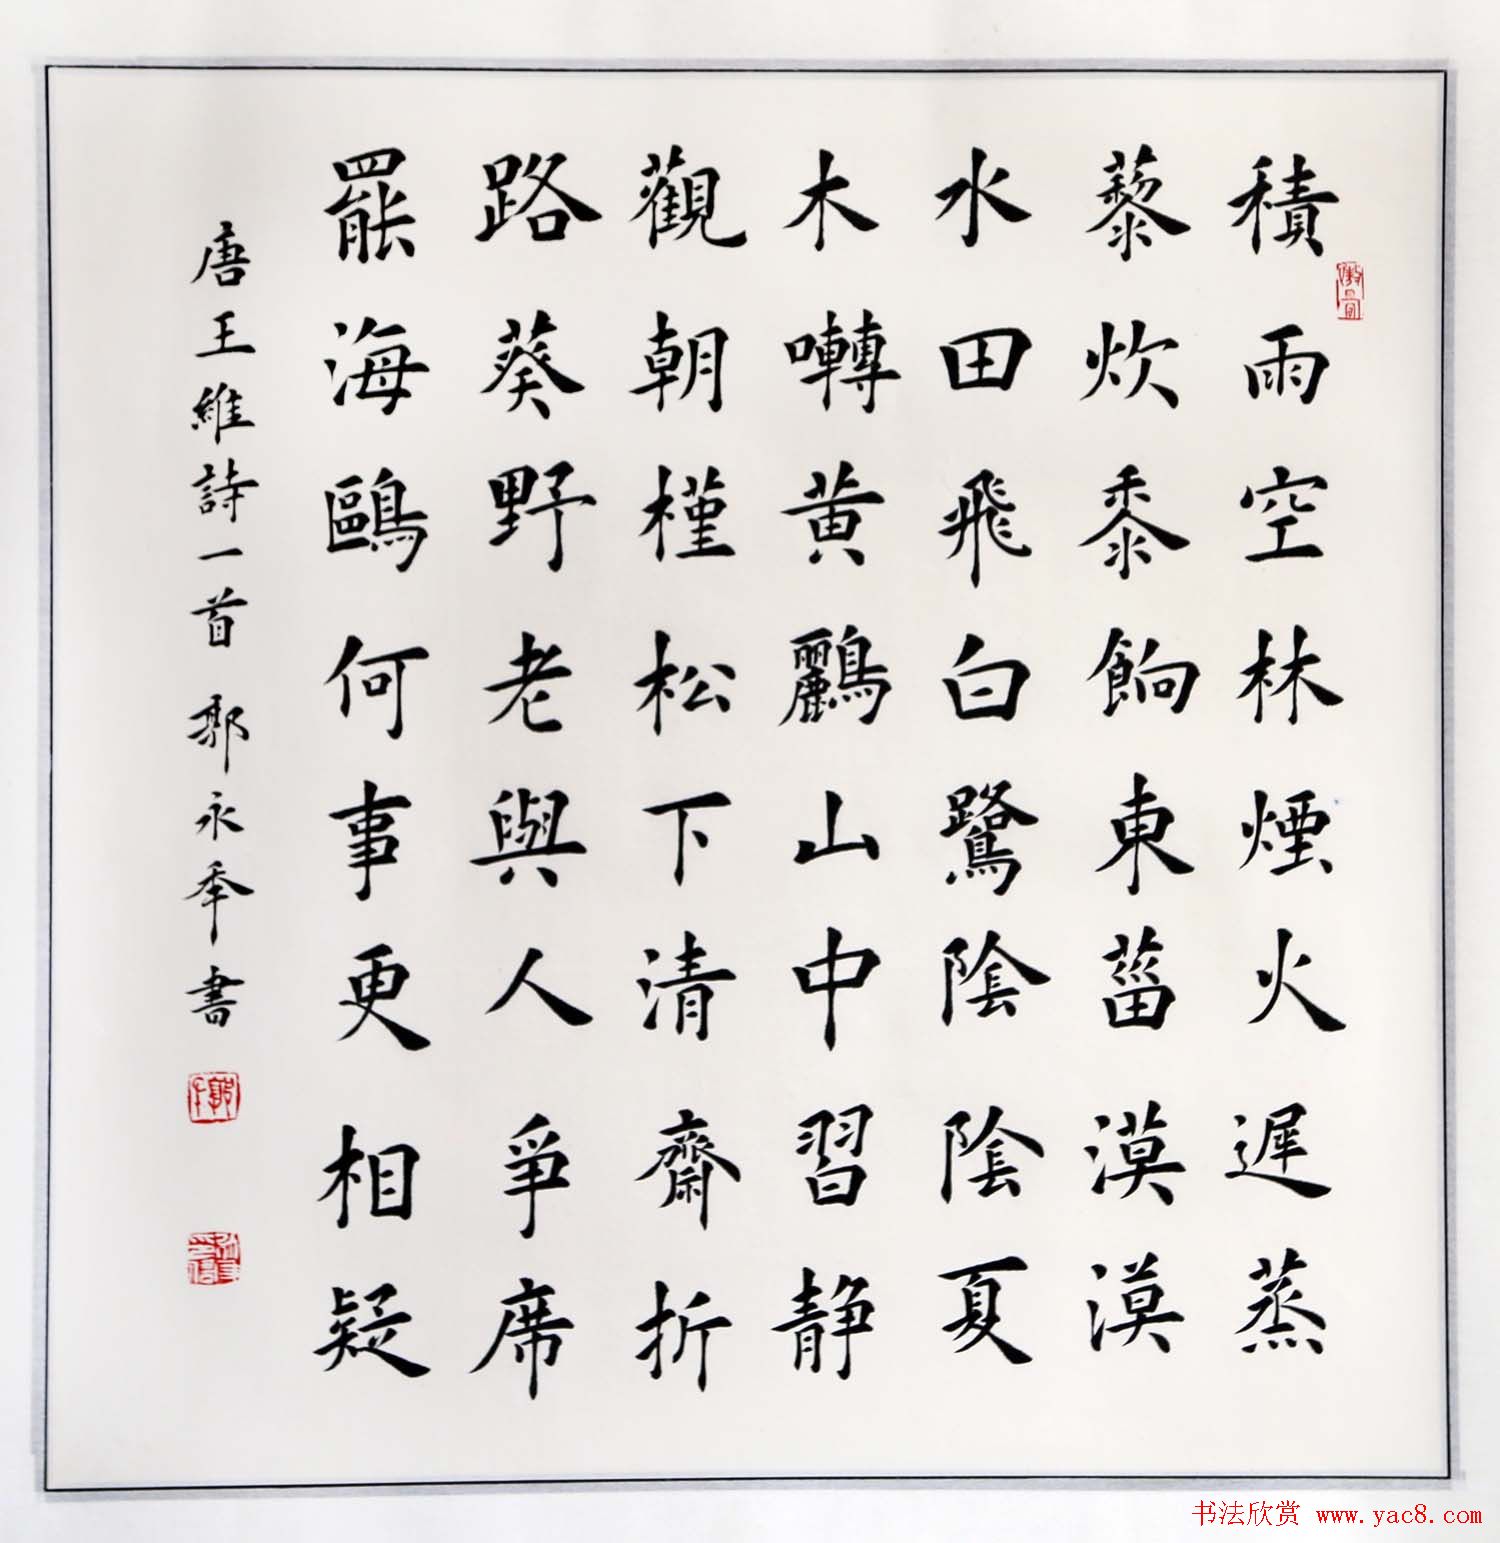 積雨空林煙火遲蒸
藜炊黍餉東菑漠漠
水田飛白鷺陰陰夏
木囀黃鸝山中習静
觀朝槿松下清齋折
路葵野老與人爭席
罷海鷗何事更相疑
唐王維詩一首 郭永年書
书法欣赏 www.yac8.com